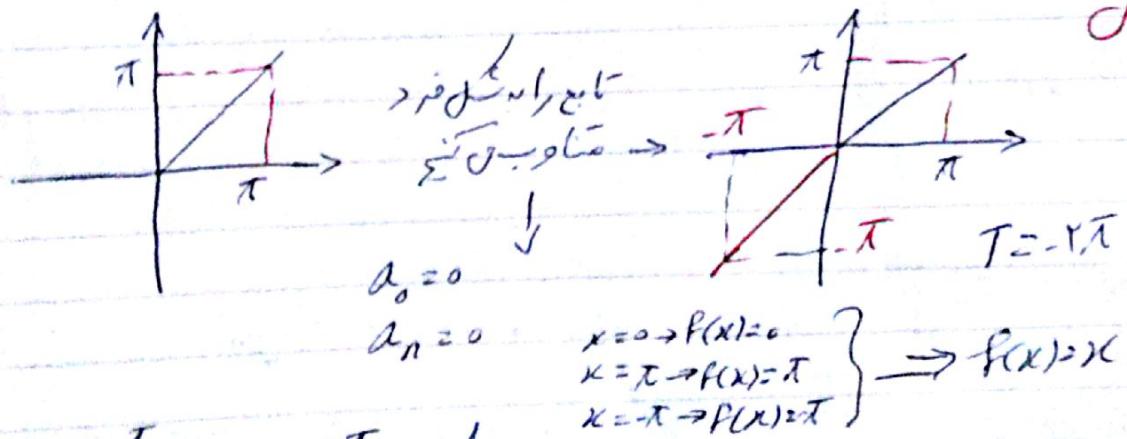 π
π
تابع را به شکل فرد
متناوب می‌کنیم →
↓
π
-π
π
-π
T = -۲π
a₀ = 0
aₙ = 0
x = 0 → f(x) = 0
x = π → f(x) = π
x = -π → f(x) = -π
⇒ f(x) = x